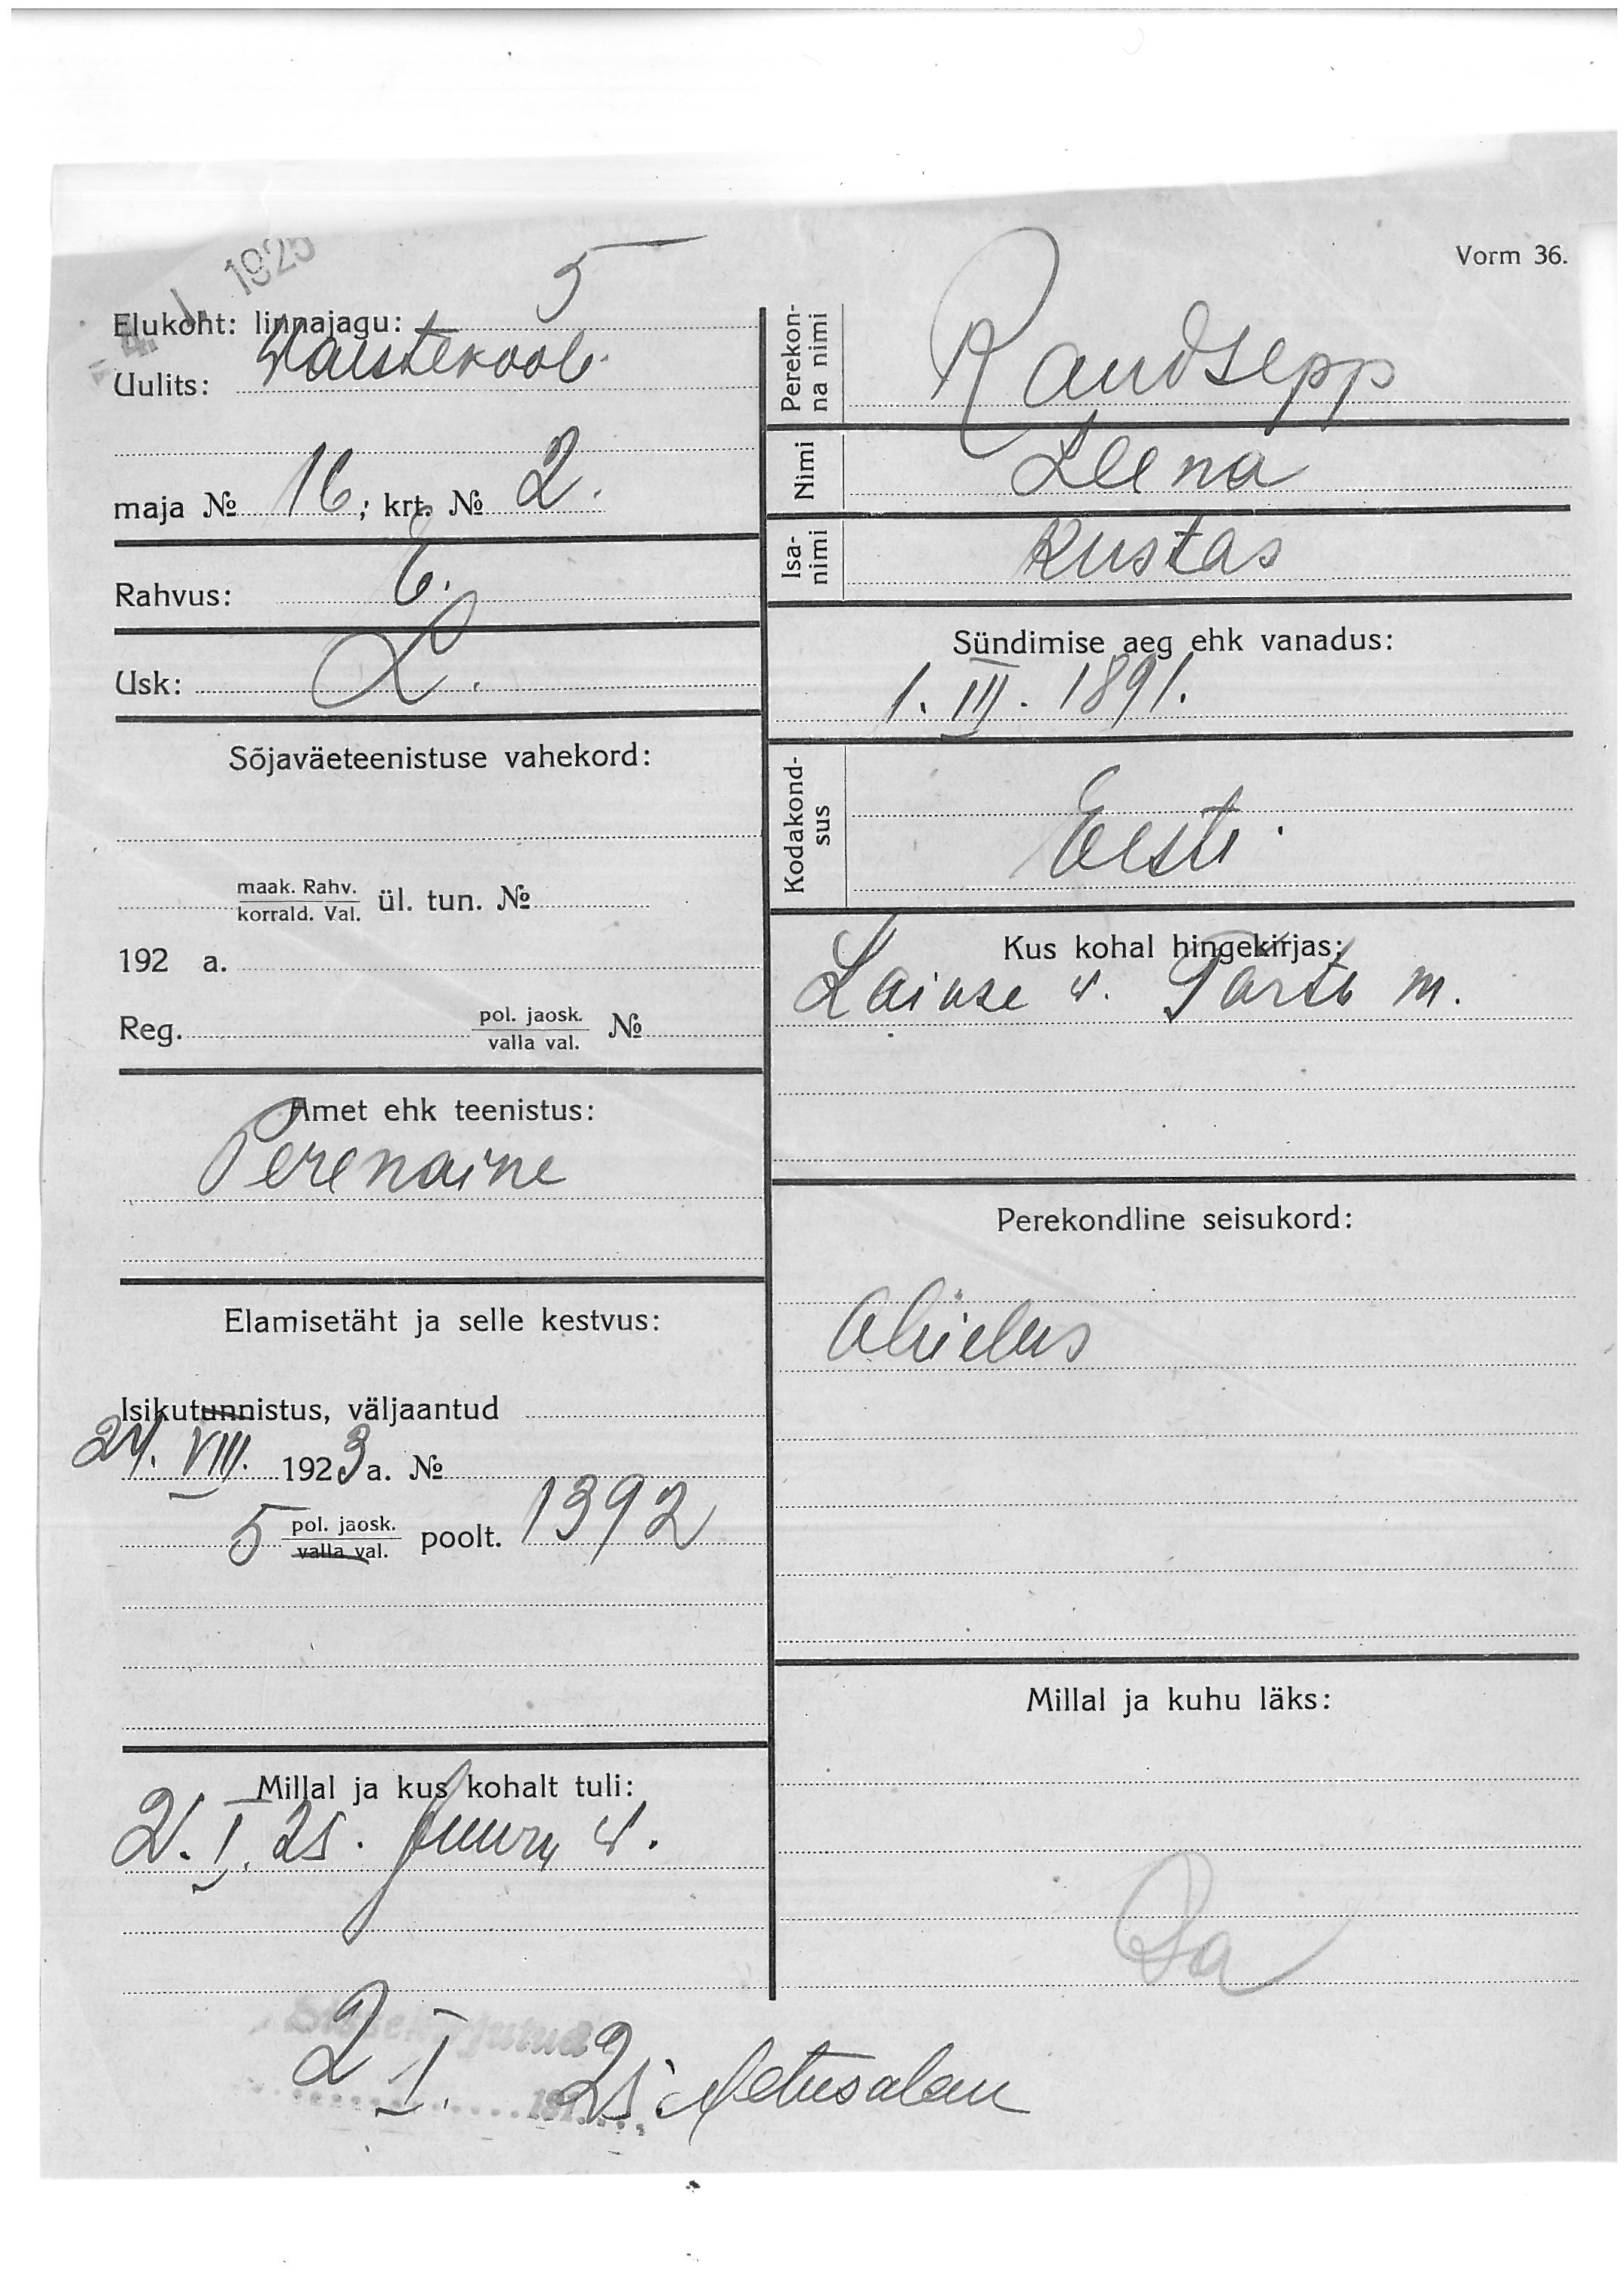 Vorm 36.
- 4. I 1925
Elukoht: linnajagu: 5
Uulits: Waestekooli
maja № 16; krt. № 2.
Rahvus: E.
Usk: L.
Sõjaväeteenistuse vahekord:
maak. Rahv.
korrald. Val. ül. tun. №
192 a.
Reg. pol. jaosk.
valla val. №
Amet ehk teenistus:
Perenaine
Elamisetäht ja selle kestvus:
Isikutunnistus, väljaantud
24. VIII. 1923 a. №
5 pol. jaosk.
valla val. poolt. 1392
Millal ja kus kohalt tuli:
2. I. 25. Juuru w.
Perekon-
na nimi Raudsepp
Nimi Leena
Isa-
nimi Kustas
Sündimise aeg ehk vanadus:
1. III. 1891.
Kodakond-
sus Eesti.
Kus kohal hingekirjas:
Laiuse w. Tartu m.
Perekondline seisukord:
abielus
Millal ja kuhu läks:
2 I. 25.